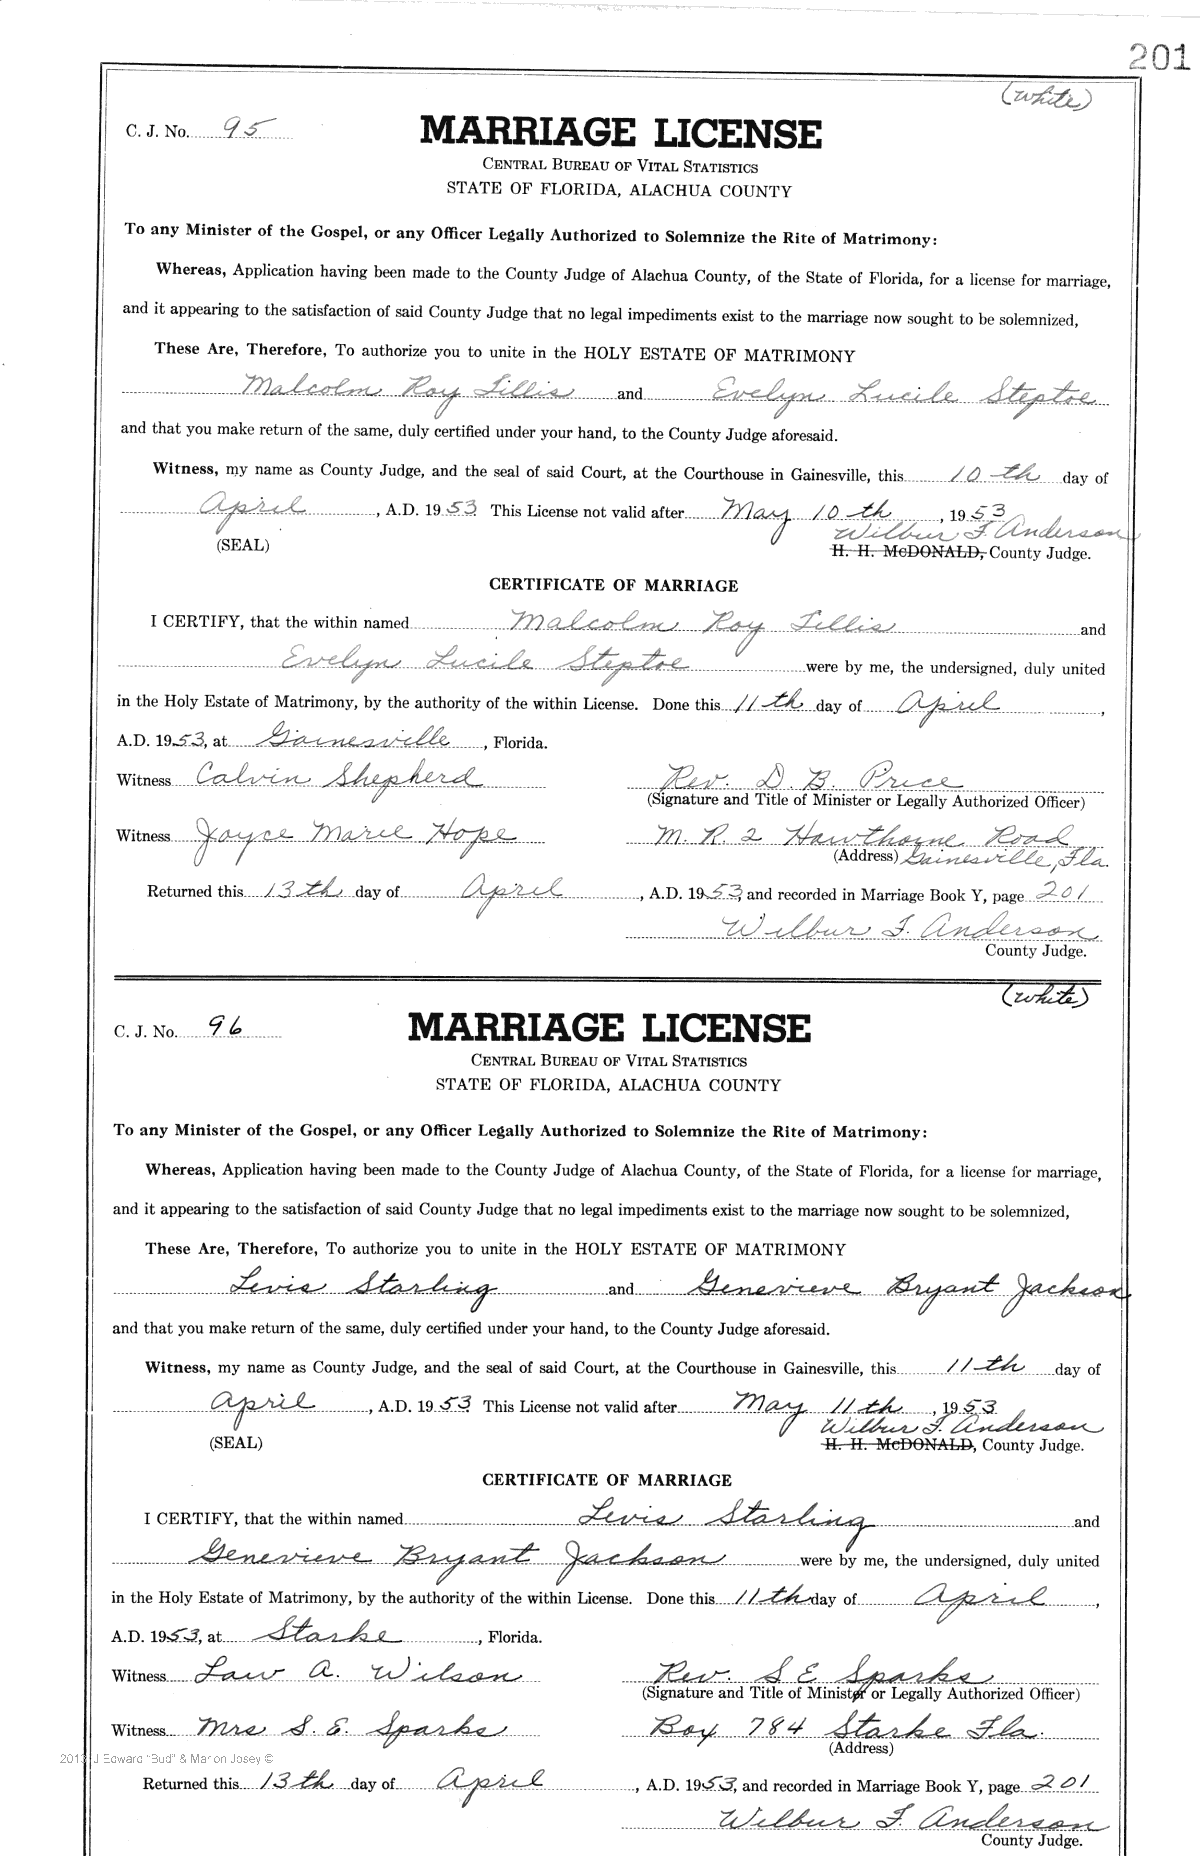 201
(White)
C. J. No. 95
MARRIAGE LICENSE
CENTRAL BUREAU OF VITAL STATISTICS
STATE OF FLORIDA, ALACHUA COUNTY
To any Minister of the Gospel, or any Officer Legally Authorized to Solemnize the Rite of Matrimony:
Whereas, Application having been made to the County Judge of Alachua County, of the State of Florida, for a license for marriage,
and it appearing to the satisfaction of said County Judge that no legal impediments exist to the marriage now sought to be solemnized,
These Are, Therefore, To authorize you to unite in the HOLY ESTATE OF MATRIMONY
Malcolm Roy Tillis and Evelyn Lucile Steptoe
and that you make return of the same, duly certified under your hand, to the County Judge aforesaid.
Witness, my name as County Judge, and the seal of said Court, at the Courthouse in Gainesville, this 10th day of
April, A.D. 1953 This License not valid after May 10th, 1953
Wilbur F. Anderson
(SEAL) H. H. McDONALD, County Judge.
CERTIFICATE OF MARRIAGE
I CERTIFY, that the within named Malcolm Roy Tillis and
Evelyn Lucile Steptoe were by me, the undersigned, duly united
in the Holy Estate of Matrimony, by the authority of the within License. Done this 11th day of April,
A.D. 1953, at Gainesville, Florida.
Witness Calvin Shepherd Rev. D. B. Price
(Signature and Title of Minister or Legally Authorized Officer)
Witness Joyce Marie Hope M. R. 2 Hawthorne Road
(Address) Gainesville, Fla.
Returned this 13th day of April, A.D. 1953, and recorded in Marriage Book Y, page 201
Wilbur F. Anderson
County Judge.
(White)
C. J. No. 96
MARRIAGE LICENSE
CENTRAL BUREAU OF VITAL STATISTICS
STATE OF FLORIDA, ALACHUA COUNTY
To any Minister of the Gospel, or any Officer Legally Authorized to Solemnize the Rite of Matrimony:
Whereas, Application having been made to the County Judge of Alachua County, of the State of Florida, for a license for marriage,
and it appearing to the satisfaction of said County Judge that no legal impediments exist to the marriage now sought to be solemnized,
These Are, Therefore, To authorize you to unite in the HOLY ESTATE OF MATRIMONY
Levis Starling and Genevieve Bryant Jackson
and that you make return of the same, duly certified under your hand, to the County Judge aforesaid.
Witness, my name as County Judge, and the seal of said Court, at the Courthouse in Gainesville, this 11th day of
April, A.D. 1953 This License not valid after May 11th, 1953
Wilbur F. Anderson
(SEAL) H. H. McDONALD, County Judge.
CERTIFICATE OF MARRIAGE
I CERTIFY, that the within named Levis Starling and
Genevieve Bryant Jackson were by me, the undersigned, duly united
in the Holy Estate of Matrimony, by the authority of the within License. Done this 11th day of April,
A.D. 1953, at Starke, Florida.
Witness Law A. Wilson Rev. S E Sparks
(Signature and Title of Minister or Legally Authorized Officer)
Witness Mrs S. E. Sparks Box 784 Starke Fla.
(Address)
2013 J Edward "Bud" & Marion Josey ©
Returned this 13th day of April, A.D. 1953, and recorded in Marriage Book Y, page 201
Wilbur F. Anderson
County Judge.